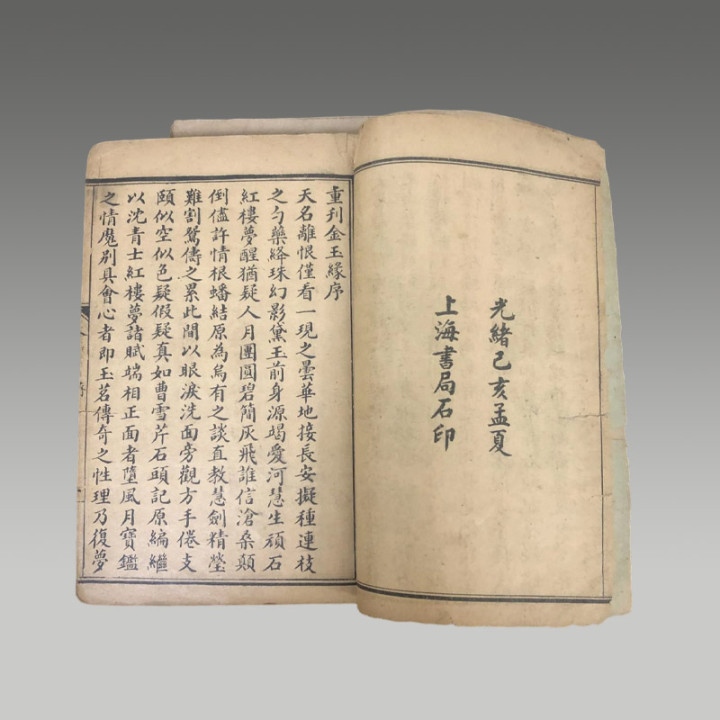 光緒己亥孟夏
上海書局石印
重刋金玉緣序
天名離恨僅看一現之曇華地接長安擬種連枝
之勺藥絳珠幻影黛玉前身源竭愛河慧生頑石
紅樓夢醒猶疑人月團圓碧簡灰飛誰信滄桑顛
倒儘許情根蟠結原為烏有之談直教慧劍精瑩
難割鴛儔之累此間以眼淚洗面旁觀方手倦支
頤似空似色疑假疑真如曹雪芹石頭記原編繼
以沈青士紅樓夢諸賦端相正面者墮風月寶鑑
之情魔別具會心者即玉茗傳奇之性理乃復夢